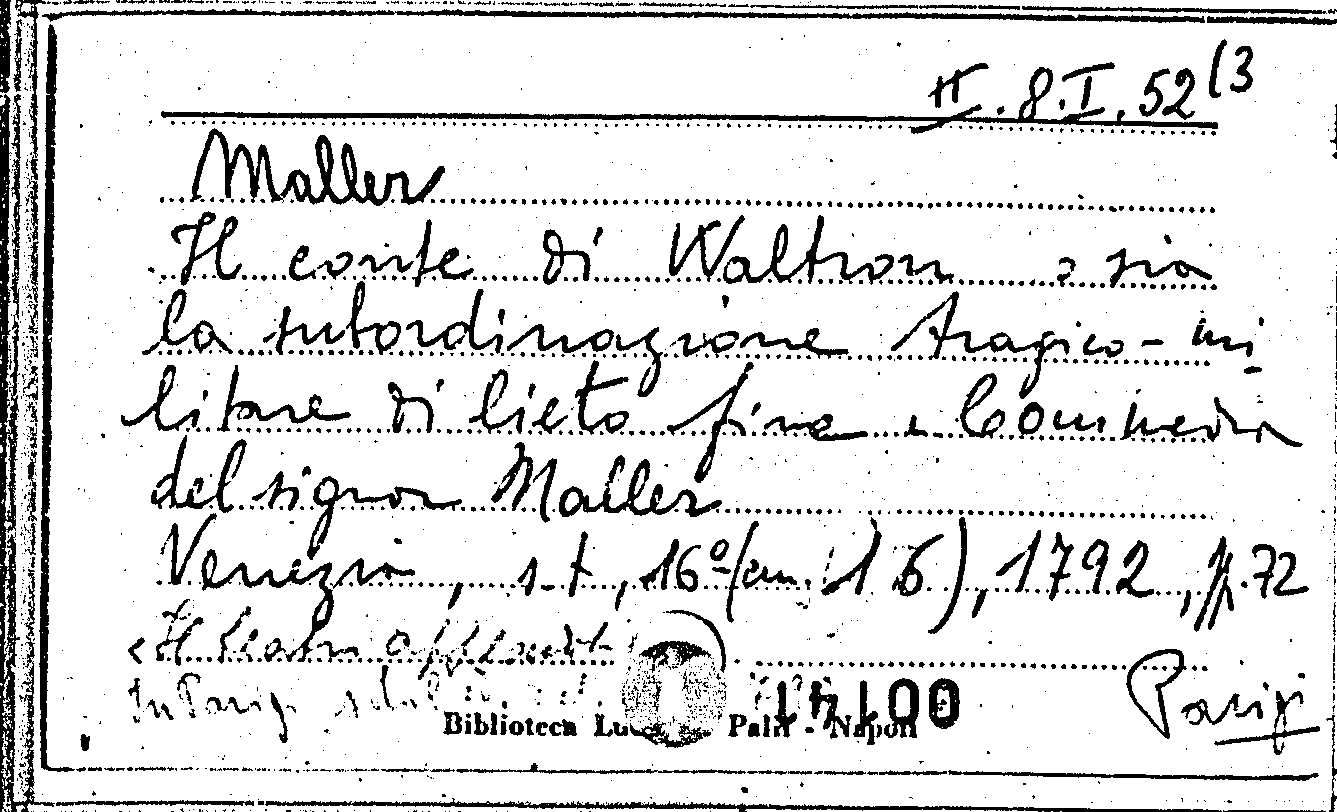 II.8.I.52(3
Maller
Il conte di Waltron o sia
la subordinazione tragico-mi-
litare di lieto fine. Commedia
del signor Maller
Venezia, s.t., 16º (cm. 16), 1792, pp. 72
"Il Teatro applaudit
In Parigi
Biblioteca Lucchesi Palli - Napoli
001441
Parigi